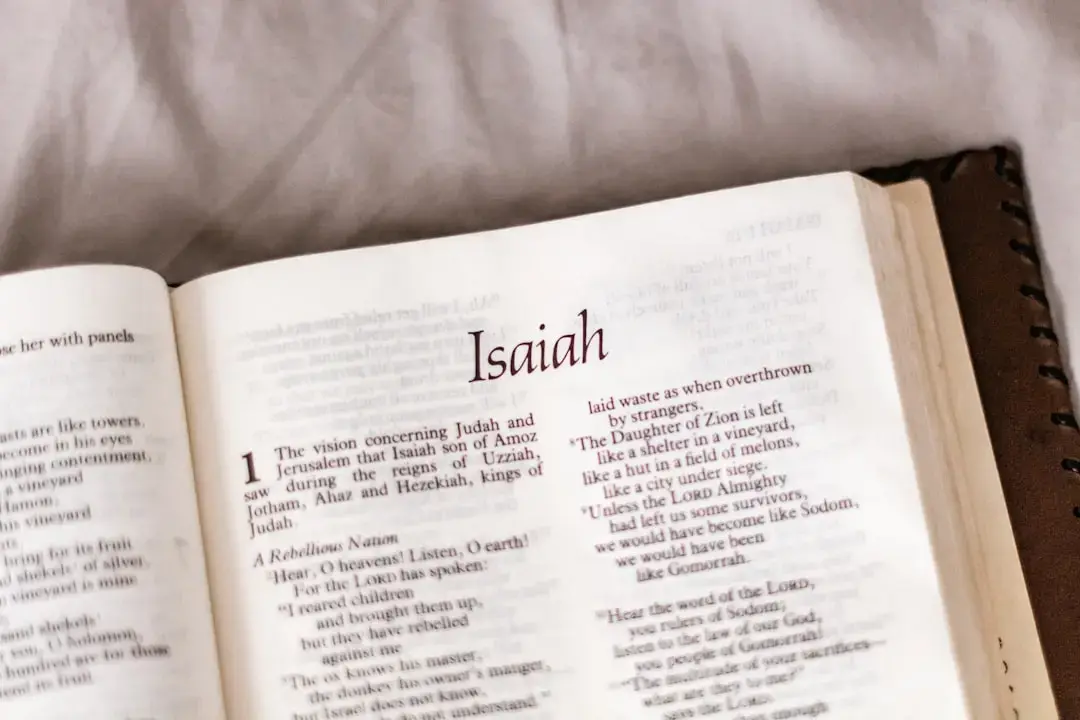 ose her with panels
asts are like towers.
become in his eyes
nging contentment.
a vineyard
Hamon;
his vineyard
bring for its fruit
shekels of silver.
vineyard is mine
sand shekels
you, O Solomon,
hundred are for those
tend its fruit.
Isaiah
1 The vision concerning Judah and
Jerusalem that Isaiah son of Amoz
saw during the reigns of Uzziah,
Jotham, Ahaz and Hezekiah, kings of
Judah.
A Rebellious Nation
²Hear, O heavens! Listen, O earth!
For the LORD has spoken:
"I reared children
and brought them up,
but they have rebelled
against me
³The ox knows his master,
the donkey his owner's manger,
but Israel does not know,
do not understand
laid waste as when overthrown
by strangers.
⁸The Daughter of Zion is left
like a shelter in a vineyard,
like a hut in a field of melons,
like a city under siege.
⁹Unless the LORD Almighty
had left us some survivors,
we would have become like Sodom,
we would have been
like Gomorrah.
¹⁰Hear the word of the LORD,
you rulers of Sodom;
listen to the law of our God,
you people of Gomorrah!
¹¹"The multitude of your sacrifices—
what are they to me?"
says the LORD.
than enough